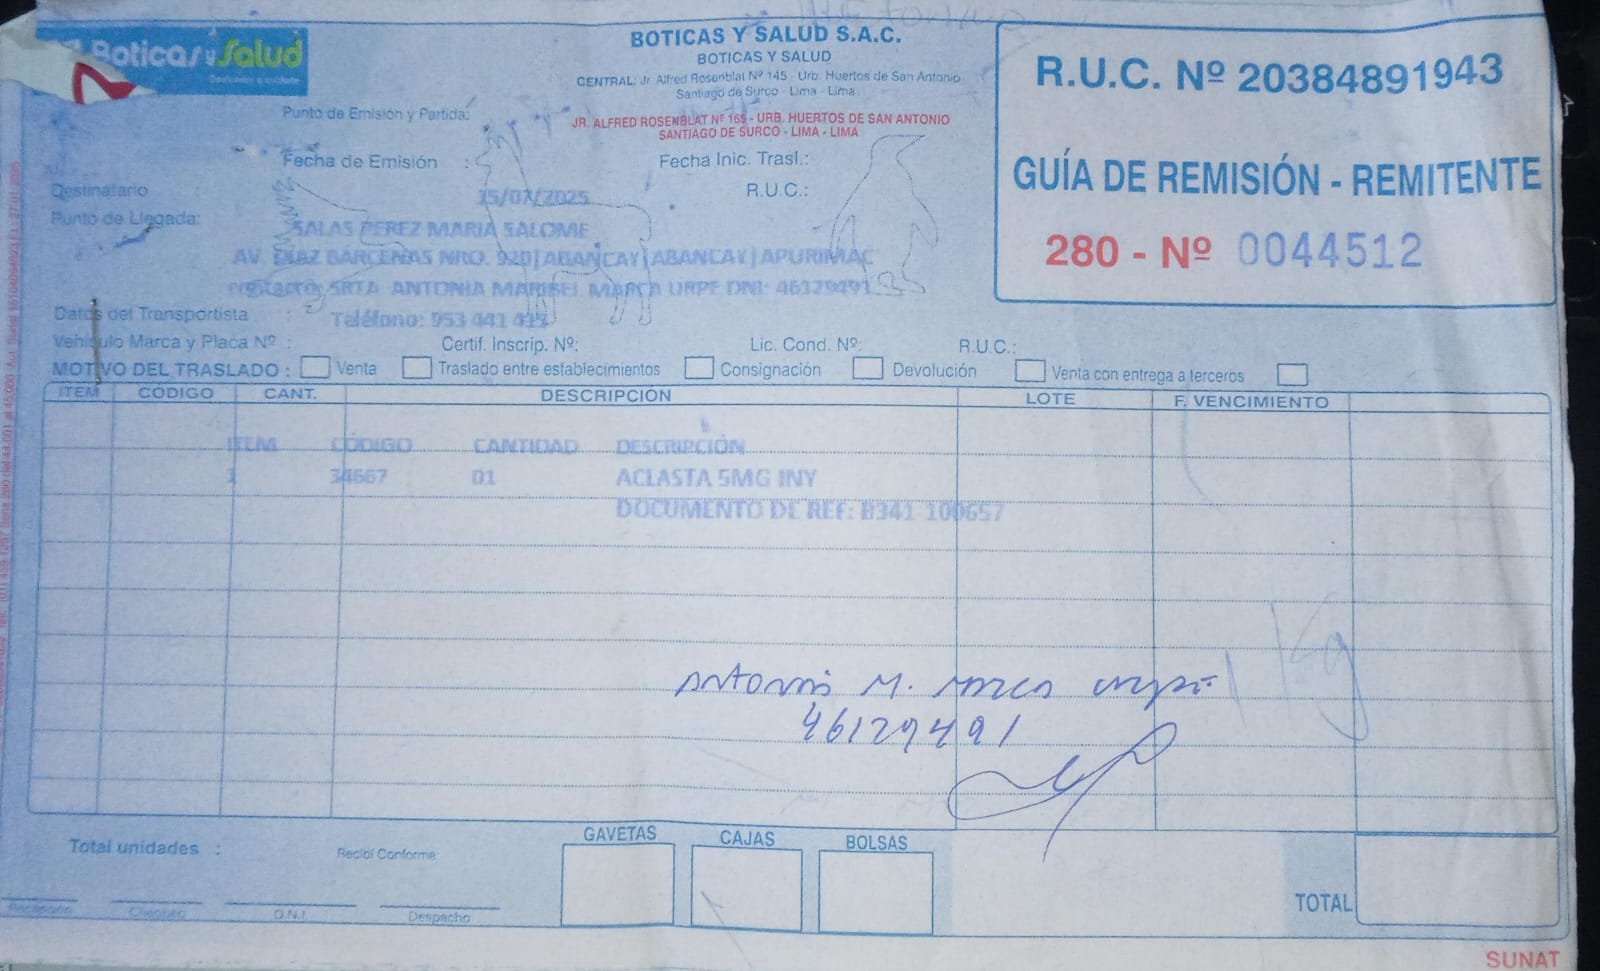 Boticas y Salud
BOTICAS Y SALUD S.A.C.
BOTICAS Y SALUD
CENTRAL: Jr. Alfred Rosenblat Nº 145 - Urb. Huertos de San Antonio
Santiago de Surco - Lima - Lima
R.U.C. Nº 20384891943
GUÍA DE REMISIÓN - REMITENTE
280 - Nº 0044512
Punto de Emisión y Partida:
JR. ALFRED ROSENBLAT Nº 165 - URB. HUERTOS DE SAN ANTONIO
SANTIAGO DE SURCO - LIMA - LIMA
Fecha de Emisión :
Fecha Inic. Trasl.:
Destinatario :
15/07/2025
R.U.C.:
Punto de Llegada:
SALAS PEREZ MARIA SALOME
AV. DIAZ BARCENAS NRO. 920|ABANCAY|ABANCAY|APURIMAC
SRTA ANTONIA MARIBEL MARCA URPE DNI: 46129491
Datos del Transportista :
Teléfono: 953 441
Vehículo Marca y Placa Nº :
Certif. Inscrip. Nº:
Lic. Cond. Nº:
R.U.C.:
MOTIVO DEL TRASLADO : Venta Traslado entre establecimientos Consignación Devolución Venta con entrega a terceros
ITEM CÓDIGO CANT. DESCRIPCIÓN LOTE F. VENCIMIENTO
ITEM CÓDIGO CANTIDAD DESCRIPCIÓN
1 34667 01 ACLASTA 5MG INY
DOCUMENTO DE REF: B341-100657
1 Kg
Antonia M. Marca Urpe
46129491
Total unidades :
Recibí Conforme:
GAVETAS CAJAS BOLSAS
1
TOTAL
Recepción Chequeo D.N.I. Despacho
SUNAT